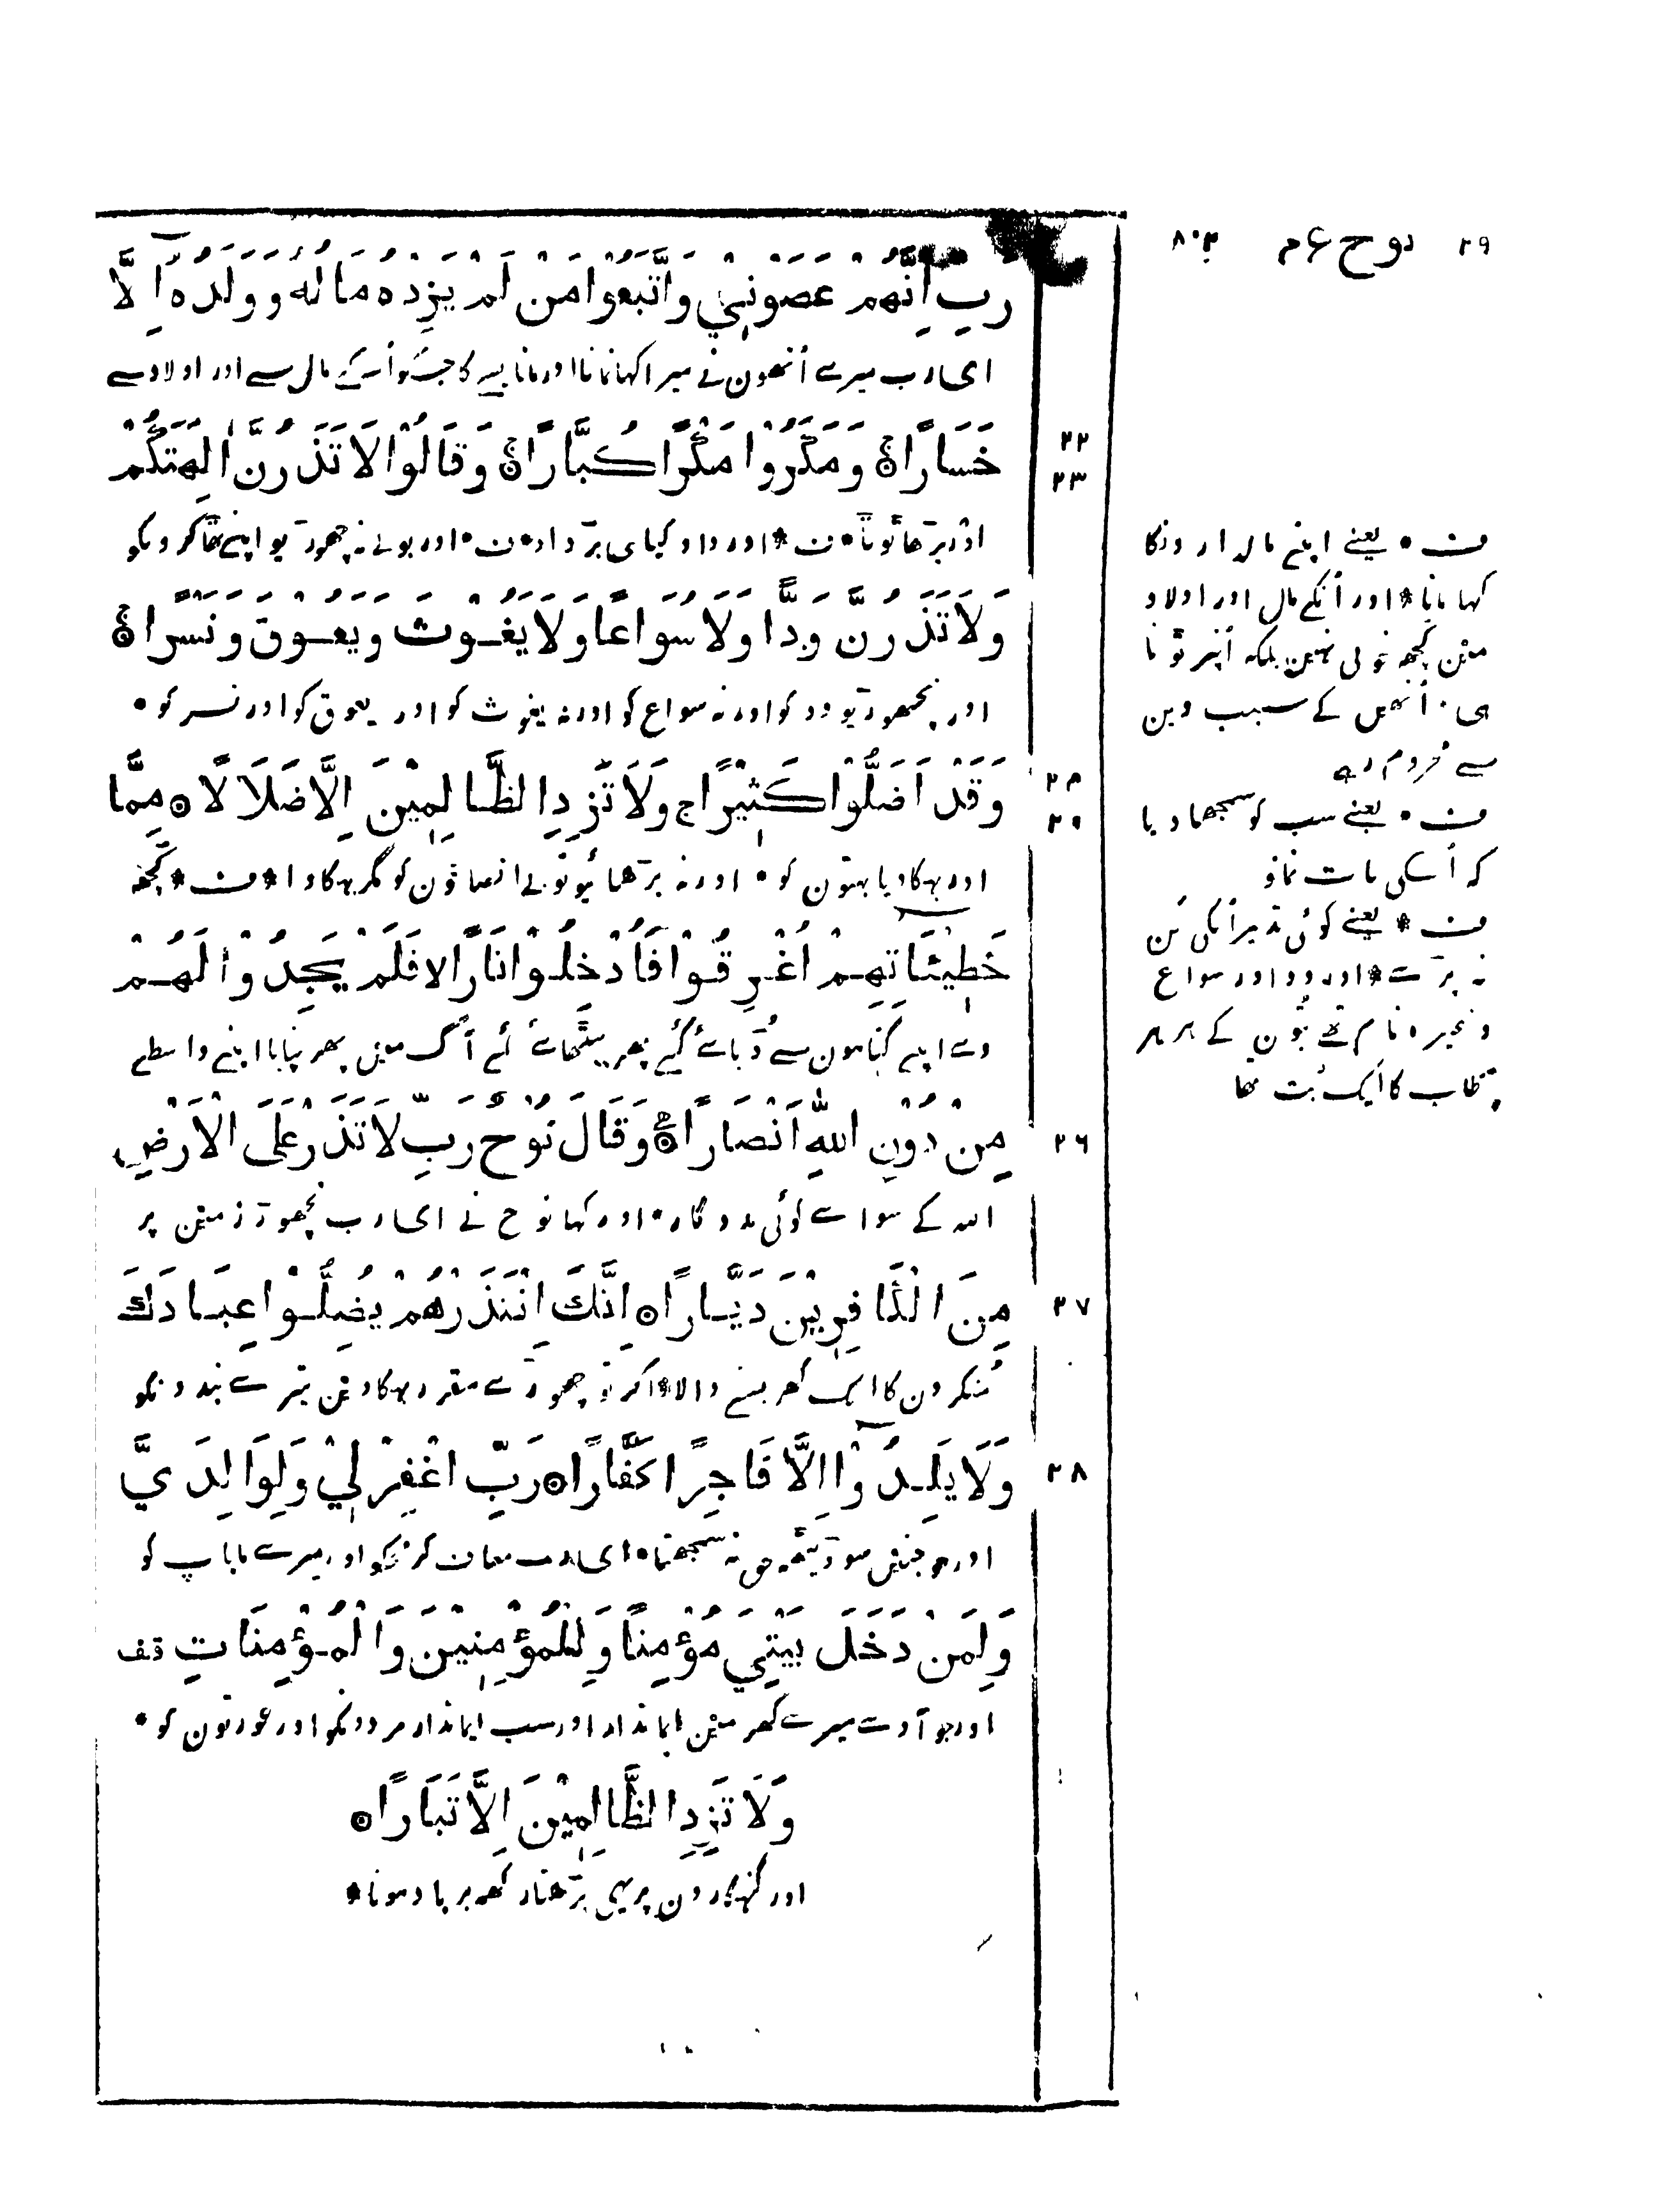 ٢٩ نوح ع م ٨٠٣
رَبِّ اِنَّهُمْ عَصَوْنِيْ وَاتَّبَعُوْا مَنْ لَّمْ يَزِدْهُ مَالُهُ وَوَلَدُهُ اِلَّا
ای رب میرے اُنھون نے میرا کہا نمانا اور مانا ایسے کا جسکو اُسکے مال سے اور اولاد سے
خَسَارًا ۝ وَمَكَرُوْا مَكْرًا كُبَّارًا ۝ وَقَالُوْا لَا تَذَرُنَّ اٰلِهَتَكُمْ ٢٢ ٢٣
اور بڑھا ٹوٹا • ف * اور داو کیا ہی بڑا داو • ف • اور بولے نہ چھوڑیو اپنے ٹھاکرونکو
وَلَا تَذَرُنَّ وَدًّا وَلَا سُوَاعًا وَلَا يَغُوْثَ وَيَعُوْقَ وَنَسْرًا ۝
اور نچھوڑیو ود کو اور نہ سواع کو اور نہ یغوث کو اور یعوق کو اور نسر کو •
وَقَدْ اَضَلُّوْا كَثِيْرًا ج وَلَا تَزِدِ الظَّالِمِيْنَ اِلَّا ضَلَالًا ۝ مِمَّا ٢٤ ٢٥
اور بہکا دیا بہتون کو • اور نہ بڑھائیو تو بے انصافون کو مگر بہکاوا * ف * کچھ
خَطِيْئَاتِهِمْ اُغْرِقُوْا فَاُدْخِلُوْا نَارًا لا فَلَمْ يَجِدُوْا لَهُمْ
وے اپنے گناہون سے ڈبائے گئے پھر پیٹھائے گئے آگ مین پھر نپایا اپنے واسطے
مِنْ دُوْنِ اللّٰهِ اَنْصَارًا ۝ وَقَالَ نُوْحٌ رَبِّ لَا تَذَرْ عَلَى الْاَرْضِ ٢٦
اللہ کے سوا ے کوئی مددگار • اور کہا نوح نے ای رب نچھوڑ زمین پر
مِنَ الْكَافِرِيْنَ دَيَّارًا ۝ اِنَّكَ اِنْ تَذَرْهُمْ يُضِلُّوْا عِبَادَكَ ٢٧
مُنکرون کا ایک گھر بسنے والا * اگر تو چھوڑے مقرر بہکاوین تیرے بندونکو
وَلَا يَلِدُوْا اِلَّا فَاجِرًا كَفَّارًا ۝ رَبِّ اغْفِرْ لِيْ وَلِوَالِدَيَّ ٢٨
اور جو جنین سو ڈھیٹھ حق نہ سمجھتا • ای رب معاف کر مجکو اور میرے ما باپ کو
وَلِمَنْ دَخَلَ بَيْتِيَ مُؤْمِنًا وَلِلْمُؤْمِنِيْنَ وَالْمُؤْمِنَاتِ قف
اور جو آوے میرے گھر مین ایماندار اور سب ایماندار مردونکو اور عورتون کو •
وَلَا تَزِدِ الظَّالِمِيْنَ اِلَّا تَبَارًا ۝
اور گنہگارون پر یہی بڑھتا رکھ برباد ہونا *
ف • یعنے اپنے مالدارونکا
کہا مانا * اور اُنکے مال اور اولاد
مین کچھ خوبی نہین بلکہ اُنپر ٹوٹا
ہی • اُنھیں کے سبب دین
سے محروم رہے
ف • یعنے سب کو سمجھا دیا
کہ اُسکی بات نمانو
ف * یعنے کوئی تدبیر اُنکی بن
نہ پڑے * اور ود اور سواع
وغیرہ نام تھے بتون کے ہر ہر
مطلب کا ایک بُت تھا